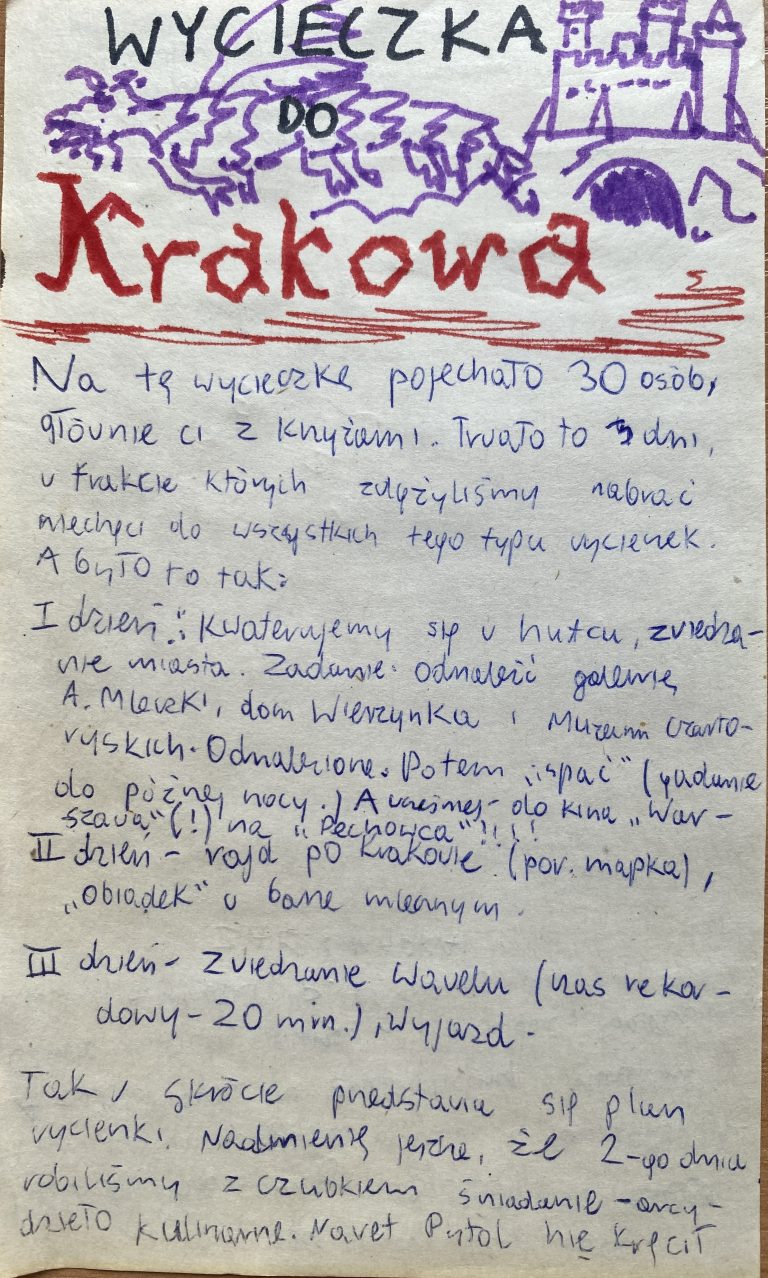 WYCIECZKA
DO
Krakowa
Na tę wycieczkę pojechało 30 osób,
głównie ci z krzyżami. Trwało to 3 dni,
w trakcie których zdążyliśmy nabrać
niechęci do wszystkich tego typu wycieczek.
A było to tak:
I dzień: Kwaterujemy się w hufcu, zwiedza-
nie miasta. Zadanie: odnaleźć galerię
A. Mleczki, dom Wierzynka i Muzeum Czarto-
ryskich. Odnalezione. Potem „spać" (gadanie
do późnej nocy.) A wcześniej - do kina „War-
szawa" (!) na „Pechowca"!!!!
II dzień - rajd po Krakowie (por. mapka),
„Obiadek" w barze mlecznym.
III dzień - Zwiedzanie Wawelu (czas rekor-
dowy - 20 min.), wyjazd.
Tak w skrócie przedstawia się plan
wycieczki. Nadmienię jeszcze, że 2-go dnia
robiliśmy z czubkiem śniadanie - arcy-
dzieło kulinarne. Nawet nie kręcił